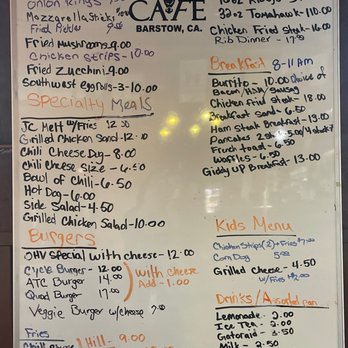 Onion Rings
Mozzarella Sticks
Fried Pickles 9.00
Fried Mushrooms-9.00
Chicken Strips-10.00
Fried Zucchini-9.00
Southwest eggrolls-3-10.00
Specialty Meals
JC Melt w/Fries 12.00
Grilled Chicken Sand-12.00
Chili Cheese Dog-8.00
Chili Cheese Size-6.50
Bowl of Chili-6.50
Hot Dog-6.00
Side Salad-4.50
Grilled Chicken Salad-10.00
Burgers
OHV Special with cheese-12.00
Cycle Burger-12.00
ATC Burger 14.00
Quad Burger 17.00
with cheese
Add-1.00
Veggie Burger w/cheese
Fries
Hill-9.00
CAFE
BARSTOW, CA.
32oz Tomahawk-110.00
Chicken Fried Steak-
Rib Dinner-
Breakfast 8-11am
Burrito-10.00 Choice of
Bacon/Ham/Sausag
Chicken fried Steak-18.00
Breakfast Sand-6.50
Ham Steak Breakfast-13.00
Pancakes
French toast-6.50
Waffles-6.50
Giddy up Breakfast-13.00
Kids Menu
Chicken Strips(2)+Fries $7.00
Corn Dog 5.00
Grilled Cheese-4.50
w/Fries
Drinks/
Lemonade-2.00
Ice Tea-2.00
Gatoraid-3.50
Milk-2.50